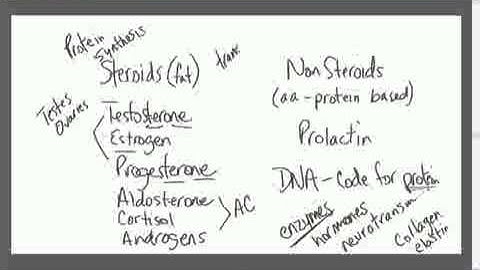 Protein
Synthesis
Steroids (fat)
trans
Testes
Ovaries
Testosterone
Estrogen
Progesterone
Aldosterone
Cortisol
Androgens
AC
Non Steroids
(aa-protein based)
Prolactin
DNA - Code for protein
enzymes
hormones
neurotransm
Collagen
elastin